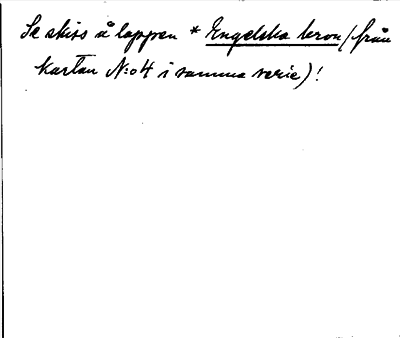 Se skiss å lappen * Engelska kron (från
kartan N:o 4 i samma serie)!